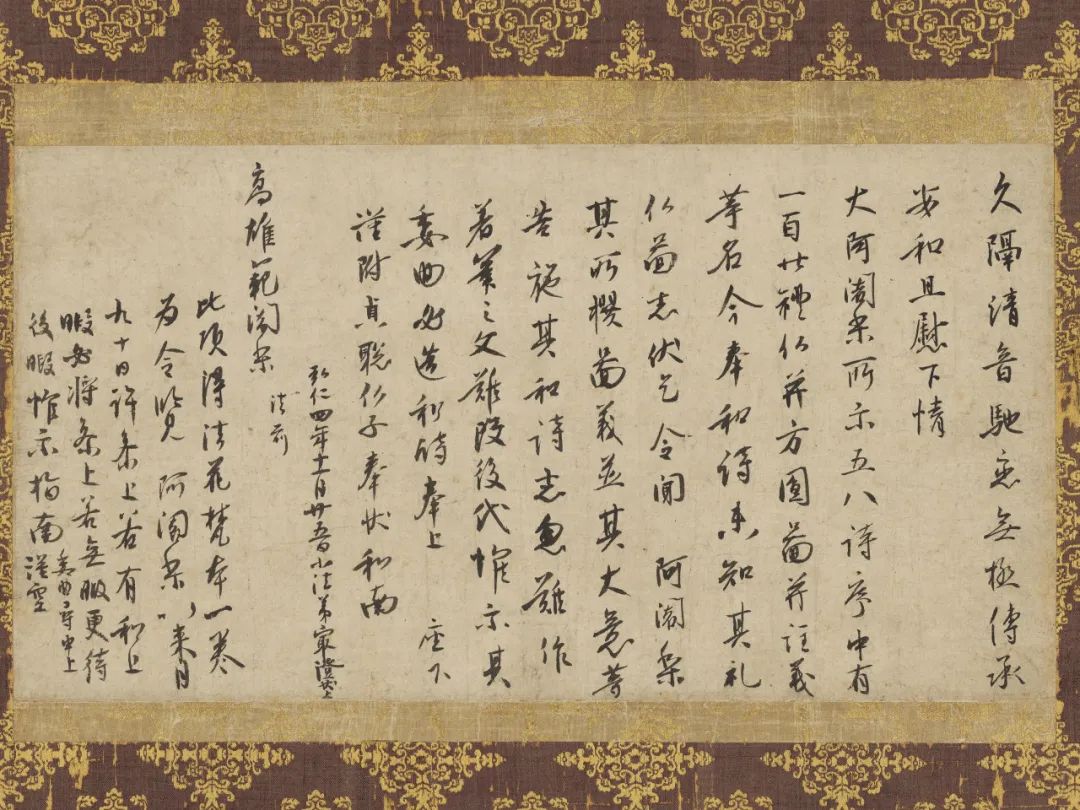 久隔清音馳恋無極傳承
安和且慰下情
大阿闍梨所示五八詩序中有
一百廿礼仏并方圓圖并註義
等名今奉和詩未知其礼
仏圖者伏乞令聞 阿闍梨
其所撰圖義并其大意等
告施其和詩者忽難作
著筆之文難改後代惟示其
委曲必造和詩奉上 座下
謹附貞聡仏子奉状和南
弘仁四年十一月廿五日小法弟最澄状上
高雄範闍梨
法前
此頃得法花梵本一巻
為令覧 阿闍梨以来月
九十日許参上若有和上
暇必将参上若無暇更待
後暇惟示指南 委曲尋申上
謹空